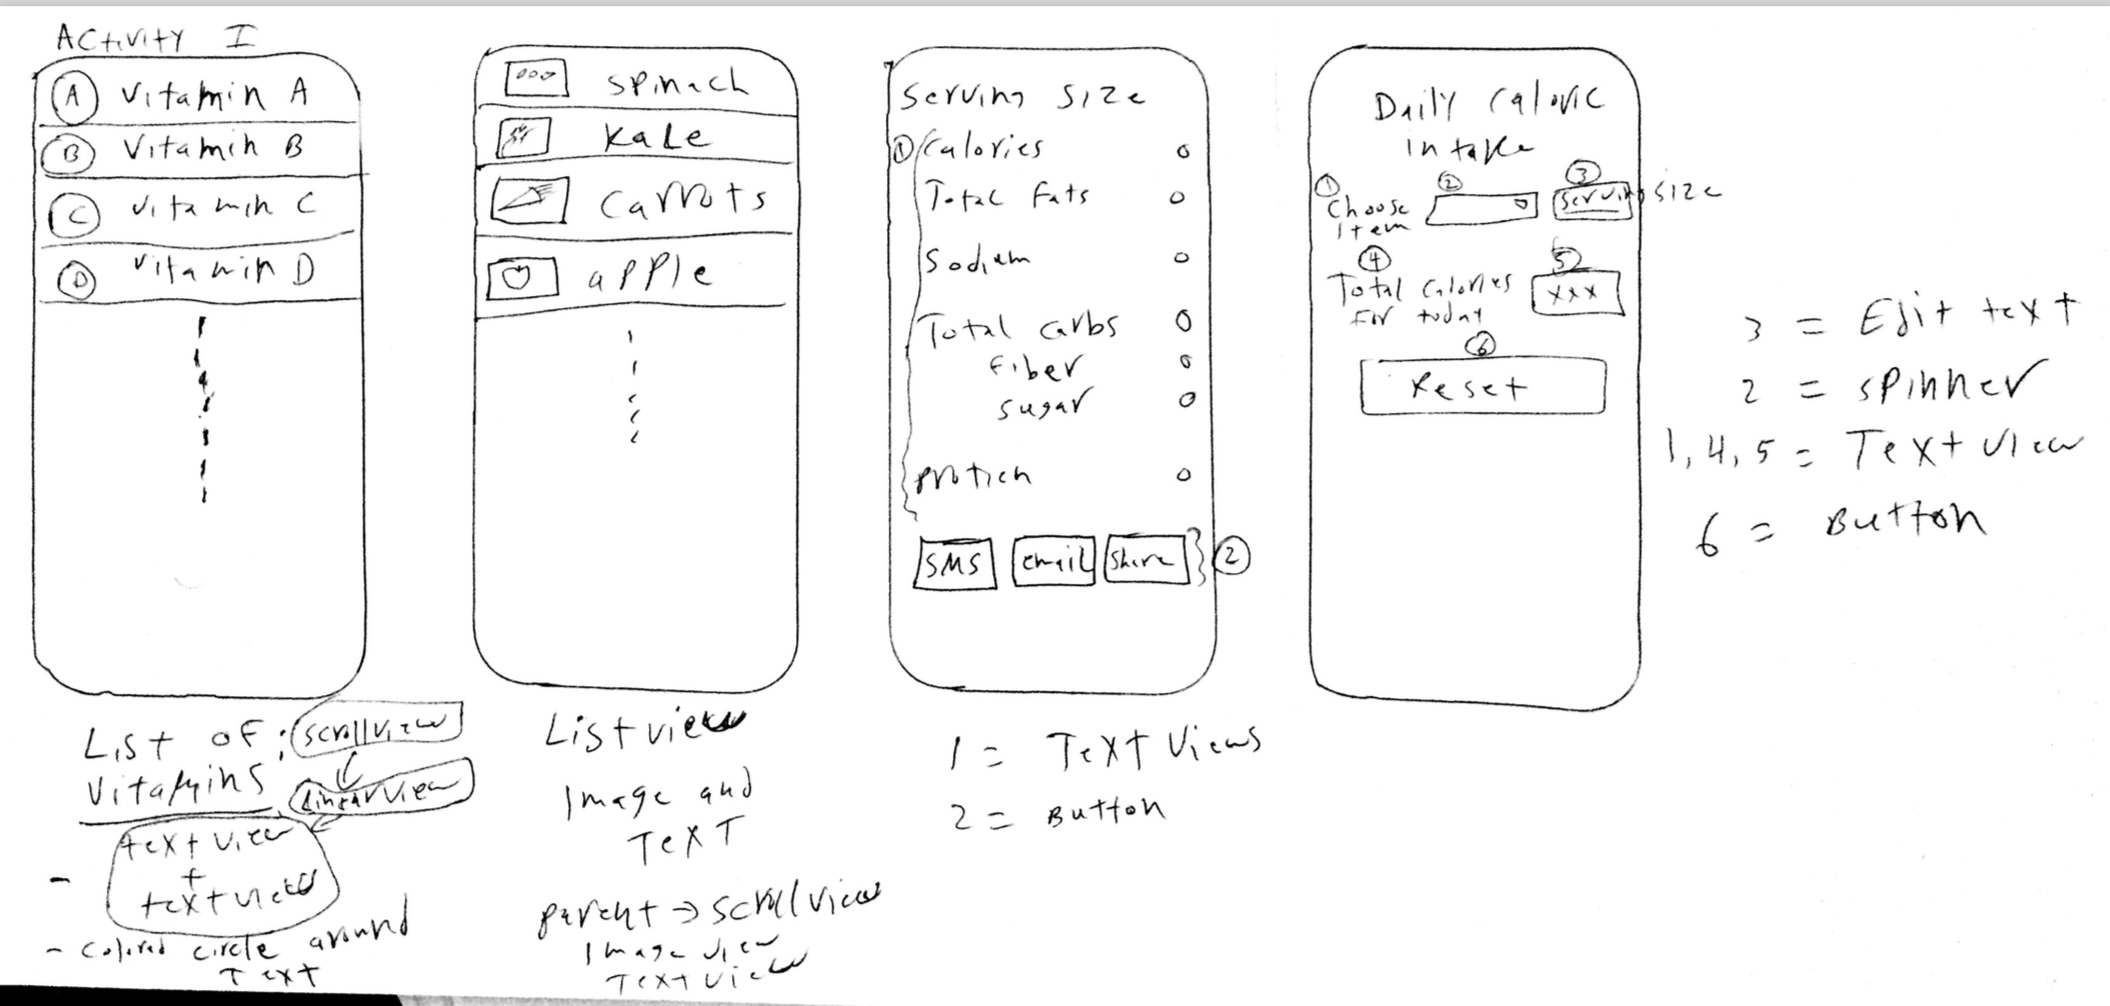 Activity I
A Vitamin A
B Vitamin B
C Vitamin C
D Vitamin D
List of:
Vitamins
scrollview
linearview
text view
+
textview
- colored circle around
Text
spinach
kale
carrots
apple
Listview
Image and
Text
parent → scrollview
Image view
Text view
Serving size
1 Calories 0
Total Fats 0
Sodium 0
Total carbs 0
Fiber 0
sugar 0
protien 0
SMS email Share 2
1 = Text Views
2 = Button
Daily caloric
intake
1 2 3
Choose
item
Serving size
4 5
Total Calories
For today
xxx
6
Reset
3 = Edit text
2 = spinner
1, 4, 5 = Text view
6 = Button